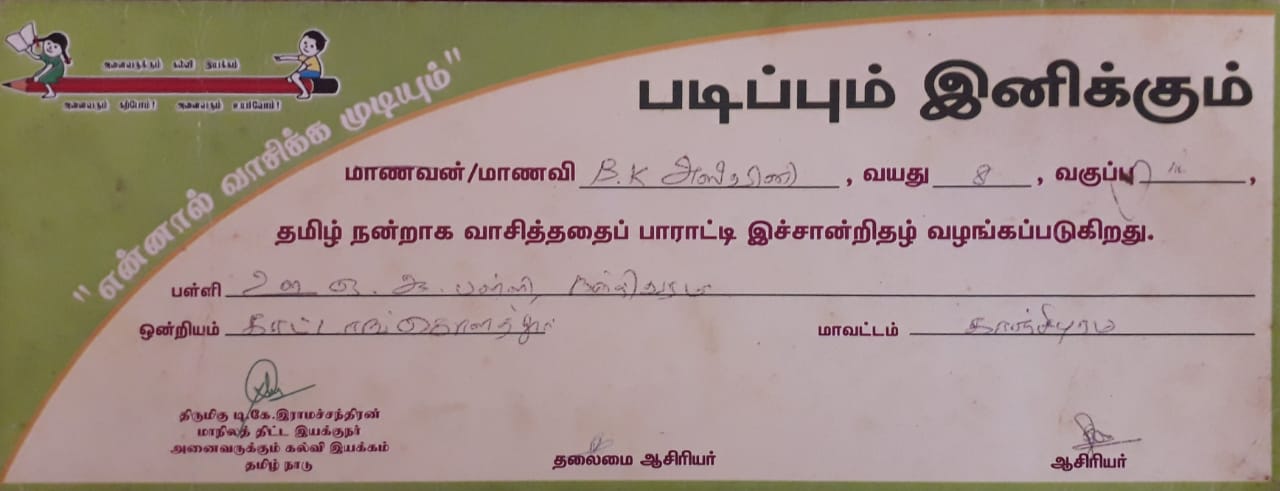 அனைவருக்கும் கல்வி இயக்கம்
அனைவரும் கற்போம்! அனைவரும் உயர்வோம்!
"என்னால் வாசிக்க முடியும்"
படிப்பும் இனிக்கும்
மாணவன்/மாணவி B.K அஸ்வினி, வயது 8, வகுப்பு
தமிழ் நன்றாக வாசித்ததைப் பாராட்டி இச்சான்றிதழ் வழங்கப்படுகிறது.
பள்ளி பள்ளி,
ஒன்றியம் காட்டாங்கொளத்தூர் மாவட்டம் காஞ்சிபுரம்
திருமிகு டி.கே.இராமச்சந்திரன்
மாநிலத் திட்ட இயக்குநர்
அனைவருக்கும் கல்வி இயக்கம்
தமிழ் நாடு
தலைமை ஆசிரியர்
ஆசிரியர்